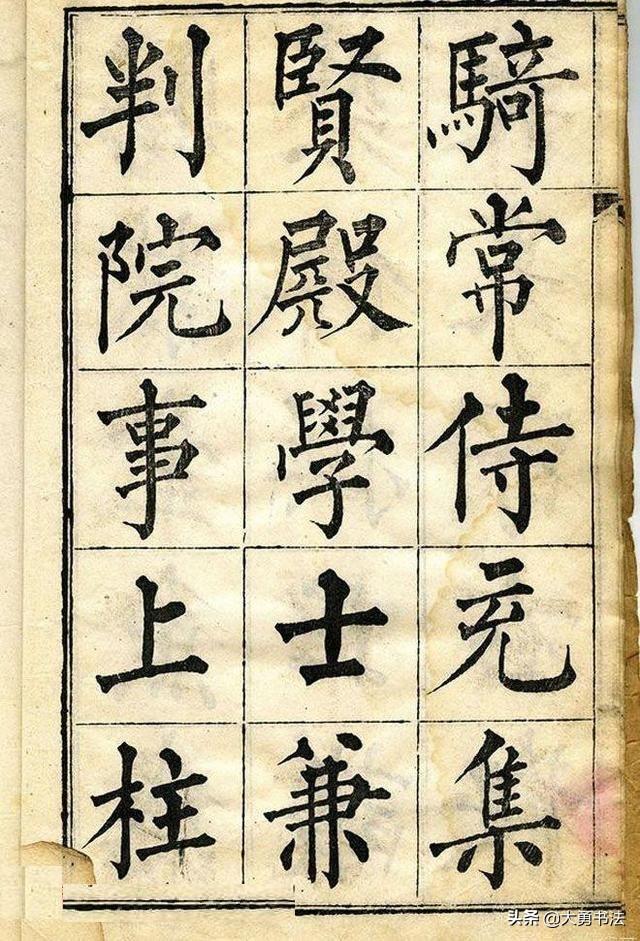 騎常侍充集
賢殿學士兼
判院事上柱
头条 @大勇书法